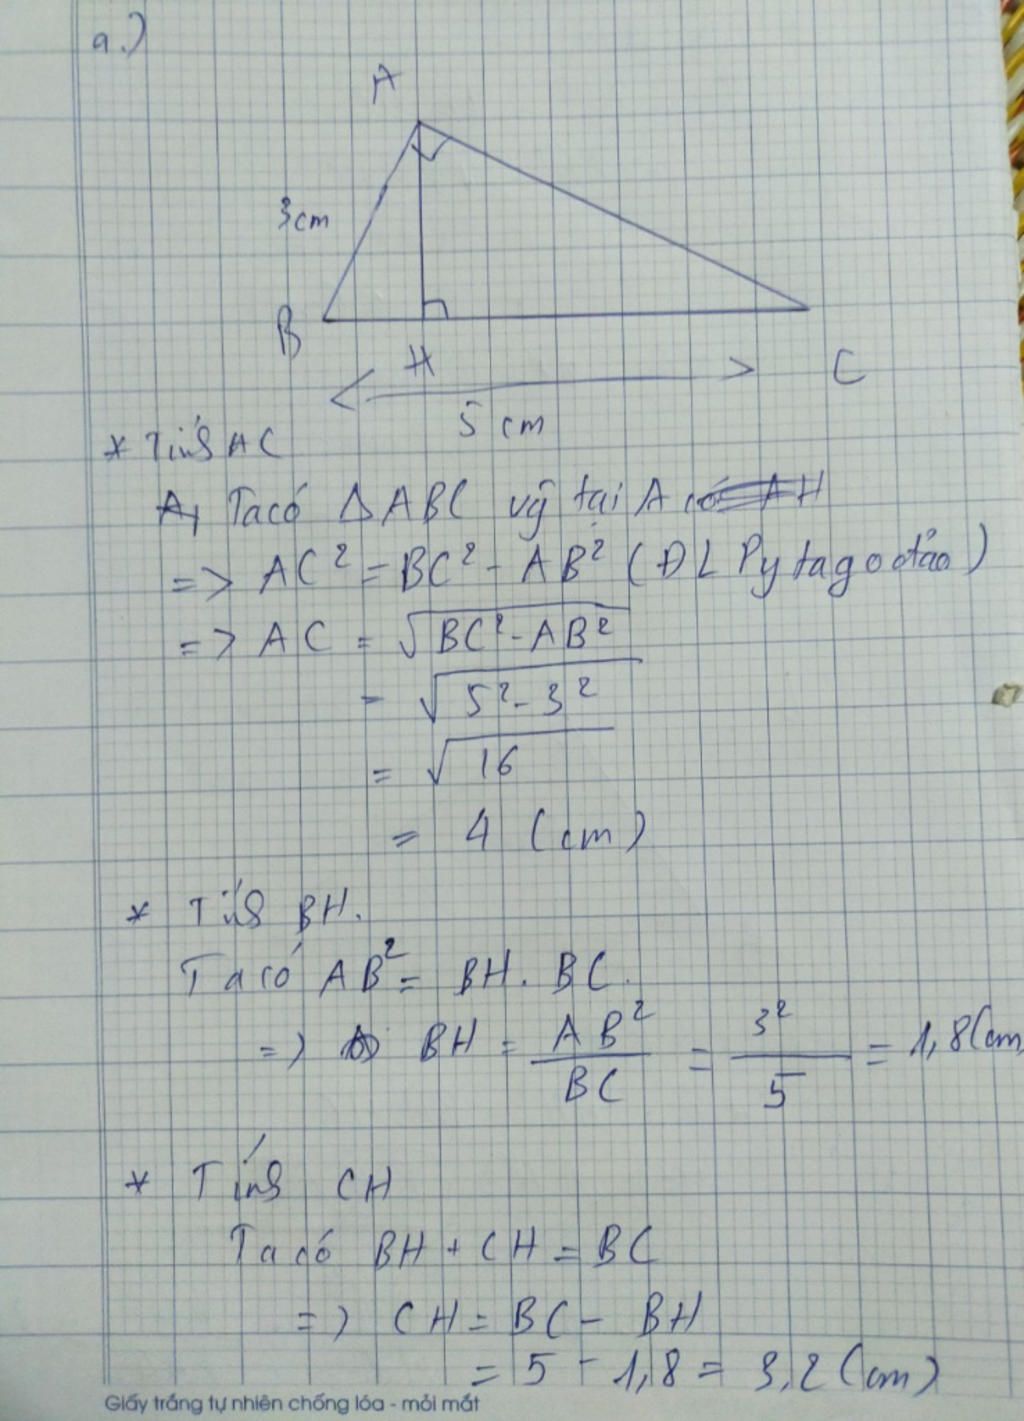 a.)
A
3cm
B
H
C
5 cm
* Tính AC
Ta có △ABC vg tại A có AH
=> AC² = BC² - AB² (ĐL Pytago đảo)
=> AC = √BC² - AB²
= √5² - 3²
= √16
= 4 (cm)
* Tính BH.
Ta có AB² = BH . BC.
=> BH = AB²/BC = 3²/5 = 1,8 (cm
* Tính CH
Ta có BH + CH = BC
=> CH = BC - BH
= 5 - 1,8 = 3,2 (cm)
Giấy trắng tự nhiên chống lóa - mỏi mắt